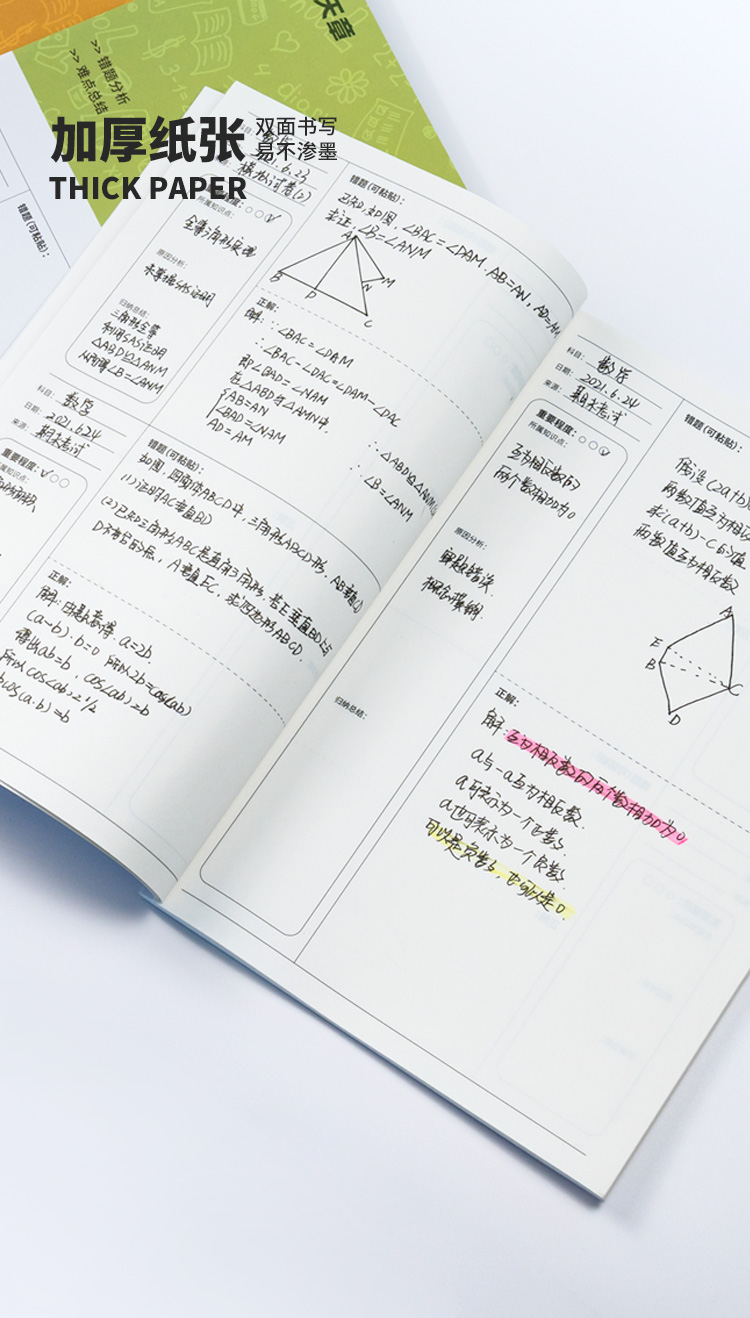 天章
>> 错题分析
>> 难点总结
加厚纸张
双面书写
易不渗墨
THICK PAPER
错题(可粘贴):
科目:
2021.6.23
模拟试卷(2)
重要程度:○○✓
所属知识点:
全等三角形实现
原因分析:
未掌握SAS证明
归纳总结:
三角形全等
利用SAS证明
△ABD≌△ANM
从而得∠B=∠ANM
错题(可粘贴):
已知,如图,∠BAC=∠DAM.AB=AN,AD=AM
求证:∠B=∠ANM
A
B
D
N
M
C
正解:
解:∵∠BAC=∠DAM
∴∠BAC-∠DAC=∠DAM-∠DAC
即∠BAD=∠NAM
在△ABD与△AMN中,
AB=AN
∠BAD=∠NAM
AD=AM
∴△ABD≌△ANM
∴∠B=∠ANM
科目: 数学
日期: 2021.6.24
来源: 期末考试
重要程度:✓○○
所属知识点:
错题(可粘贴):
如图,四面体ABCD中,三角形ABCD形,AB垂
(1)证明AC垂直BD
(2)已知三角形ABC是直角三角形,若E垂直BD上与
D不重合的点,A垂直EC,求四边形ABCD.
正解:
解:由题意得.a=2b.
(a-b).b=0 所以2b=cos(ab)
得出ab=b,cos<ab>=b
所以cos<ab>=1/2
bcos(a.b)=b
科目: 数学
日期: 2021.6.24
来源: 期末考试
重要程度:○○✓
所属知识点:
互为相反数的
两个数相加为0
原因分析:
审题错误
概念模糊
归纳总结:
错题(可粘贴):
假设(2a+b)
两数值互为相反
求(a+b)-C的值
两数值互为相反数
A
E
B
C
D
正解:
解:互为相反数的两个数相加为0.
a与-a互为相反数.
a可表示为一个正数.
a也可表示为一个负数.
可以是负数,也可以是0.